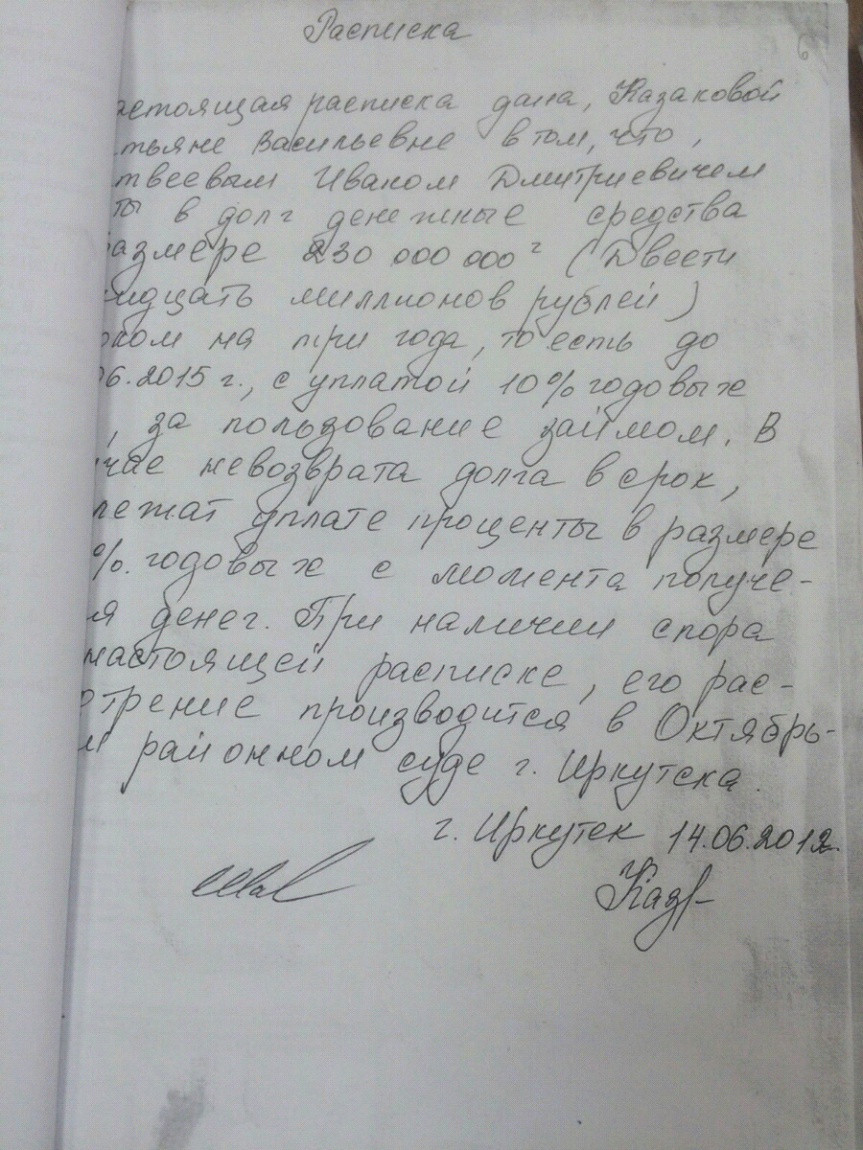 Расписка
6
астоящая расписка дана, Казаковой
тьяне Васильевне в том, что,
твеевым Иваном Дмитриевичем
ты в долг денежные средства
размере 230 000 000 (Двести
ридцать миллионов рублей)
оком на три года, то есть до
06.2015 г., с уплатой 10% годовых
, за пользование займом. В
учае невозврата долга в срок,
лежат уплате проценты в размере
%. годовых с момента получе-
ия денег. При наличии спора
настоящей расписке, его рас-
отрение производится в Октябрь-
м районном суде г. Иркутска.
г. Иркутск 14.06.2012.
Каз